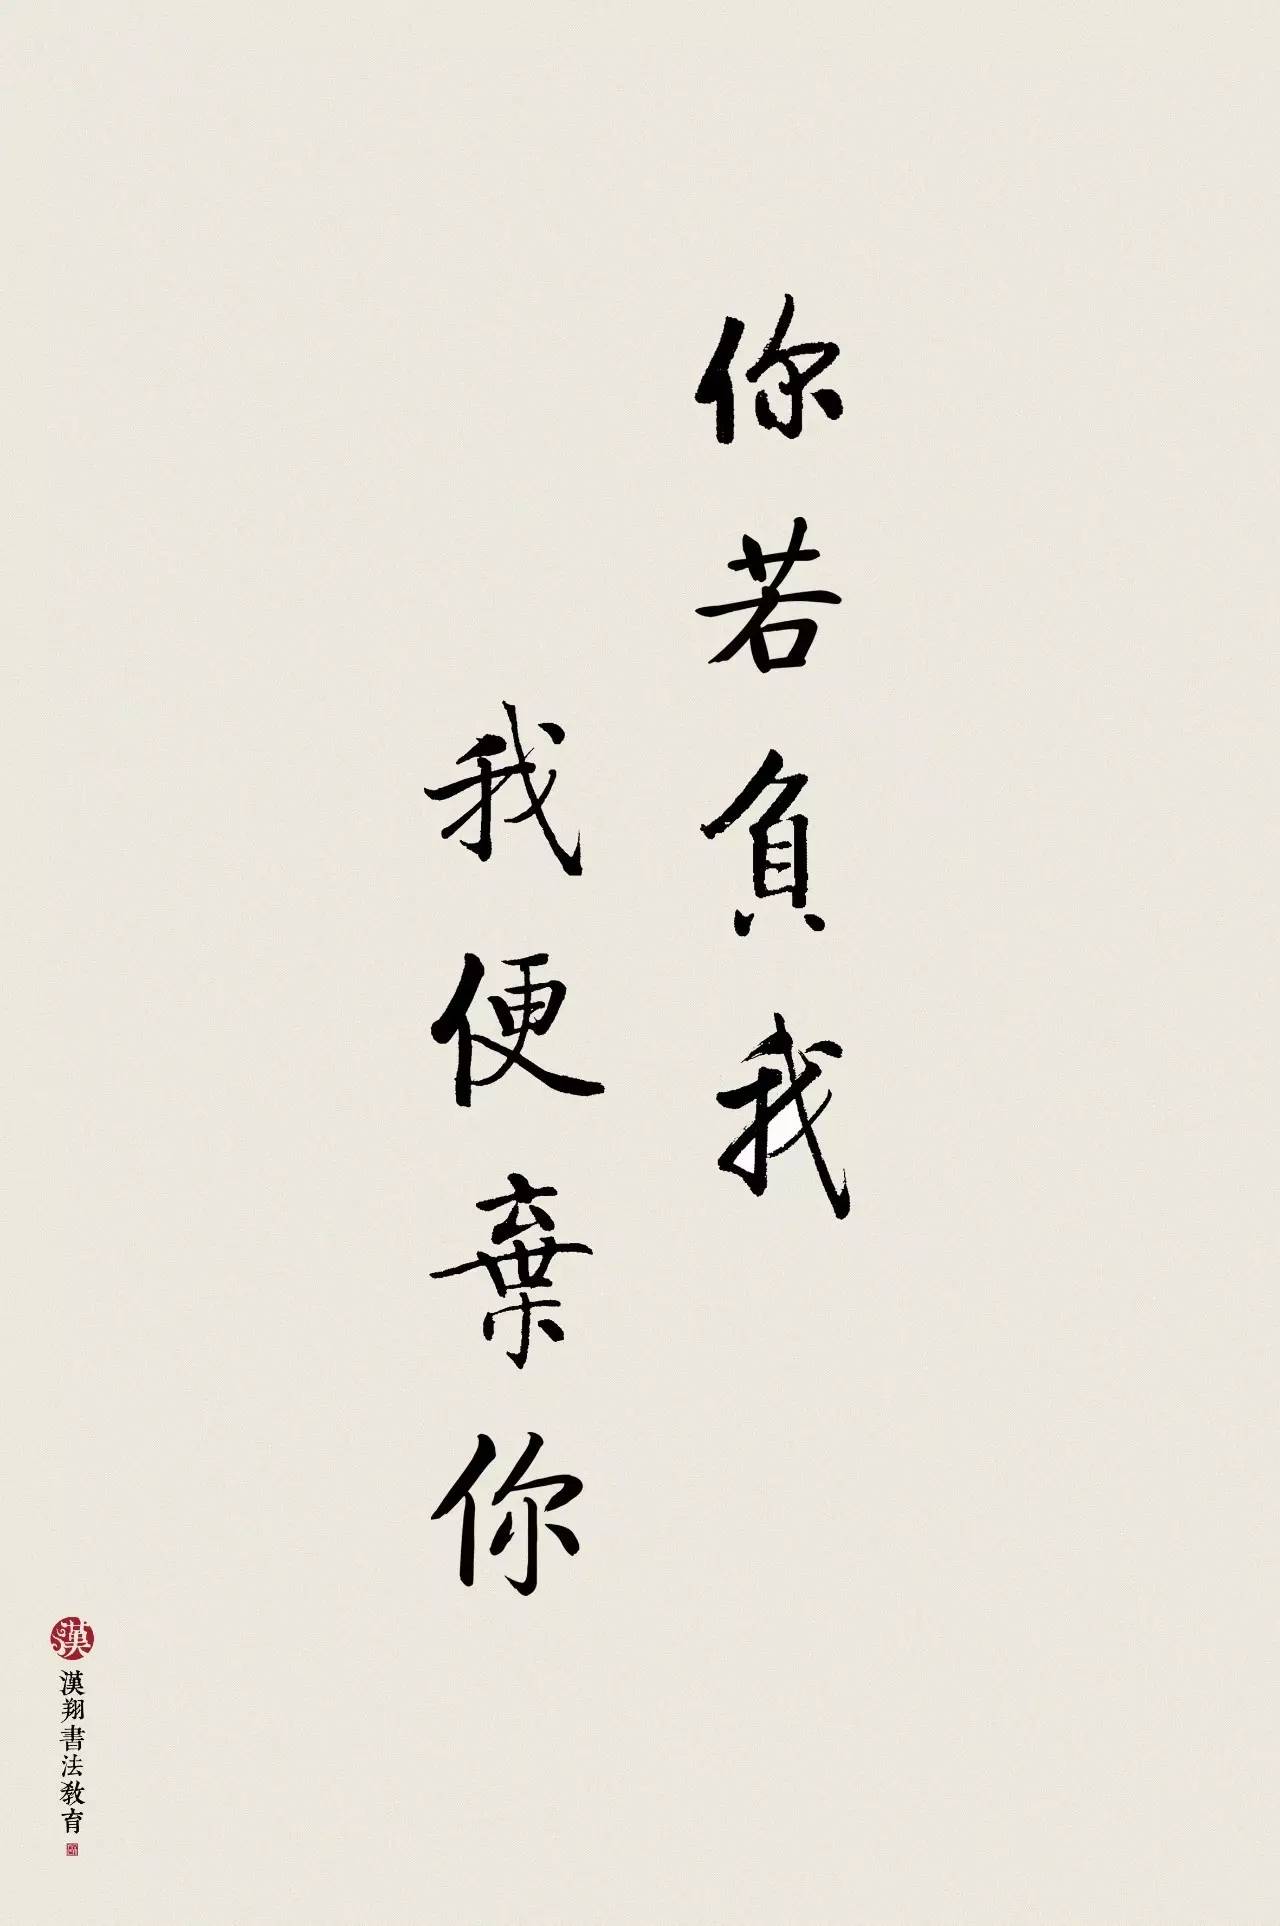 你若負我
我便棄你
漢
漢翔書法教育